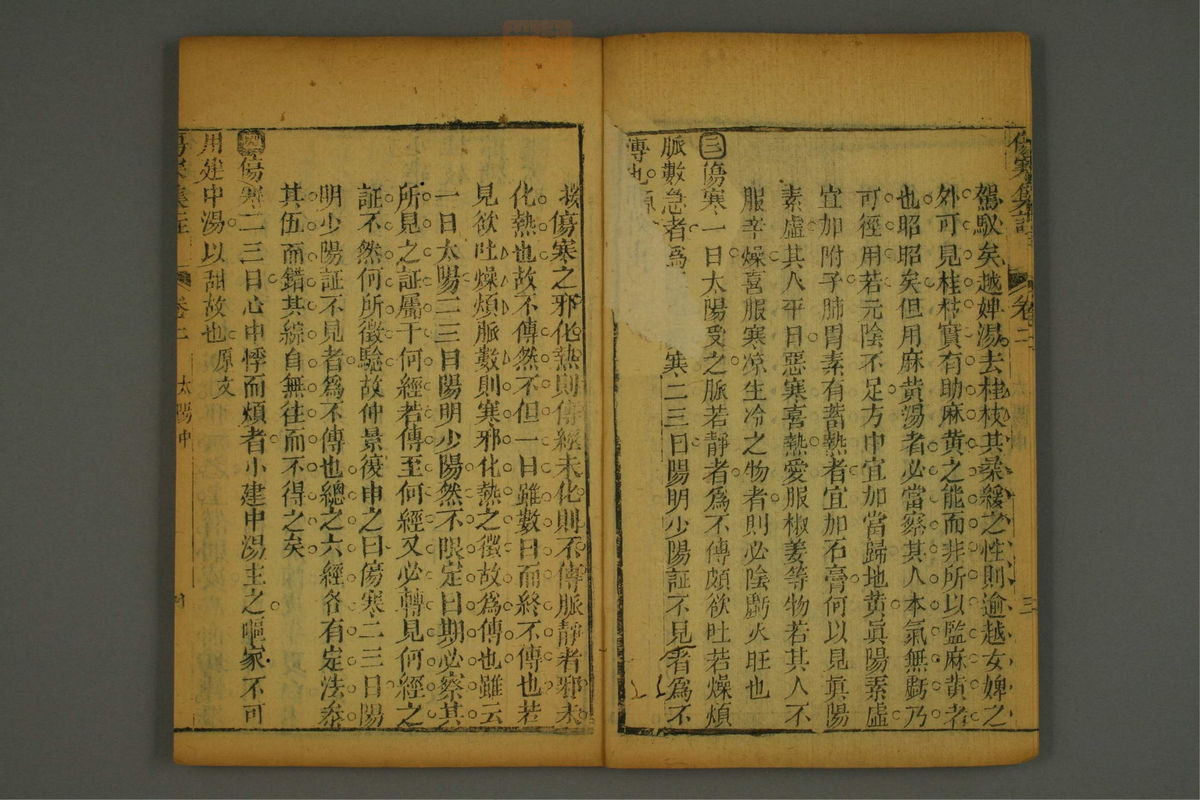 傷寒集註 卷二 太陽中 三
駕馭矣越婢湯去桂枝其柔緩之性則逾越女婢之
外可見桂枝實有助麻黄之能而非所以監麻黄者
也昭昭矣但用麻黄湯者必當察其人本氣無虧乃
可徑用若元陰不足方中宜加當歸地黄眞陽素虛
宜加附子肺胃素有蓄熱者宜加石膏何以見眞陽
素虛其人平日惡寒喜熱愛服椒姜等物若其人不
服辛燥喜服寒凉生冷之物者則必陰虧火旺也
三傷寒一日太陽受之脈若靜者爲不傳頗欲吐若燥煩
脈數急者爲
寒二三日陽明少陽証不見者爲不
傳也原
按傷寒之邪化熱則傳經未化則不傳脈靜者邪未
化熱也故不傳然不但一日雖數日而終不傳也若
見欲吐燥煩脈數則寒邪化熱之徵故爲傳也雖云
一日太陽二三日陽明少陽然不限定日期必察其
所見之証屬于何經若傳至何經又必轉見何經之
証不然何所徵驗故仲景復申之曰傷寒二三日陽
明少陽証不見者爲不傳也總之六經各有定法叅
其伍而錯其綜自無往而不得之矣
四傷寒二三日心中悸而煩者小建中湯主之嘔家不可
用建中湯以甜故也原文
傷寒集註 卷二 太陽中